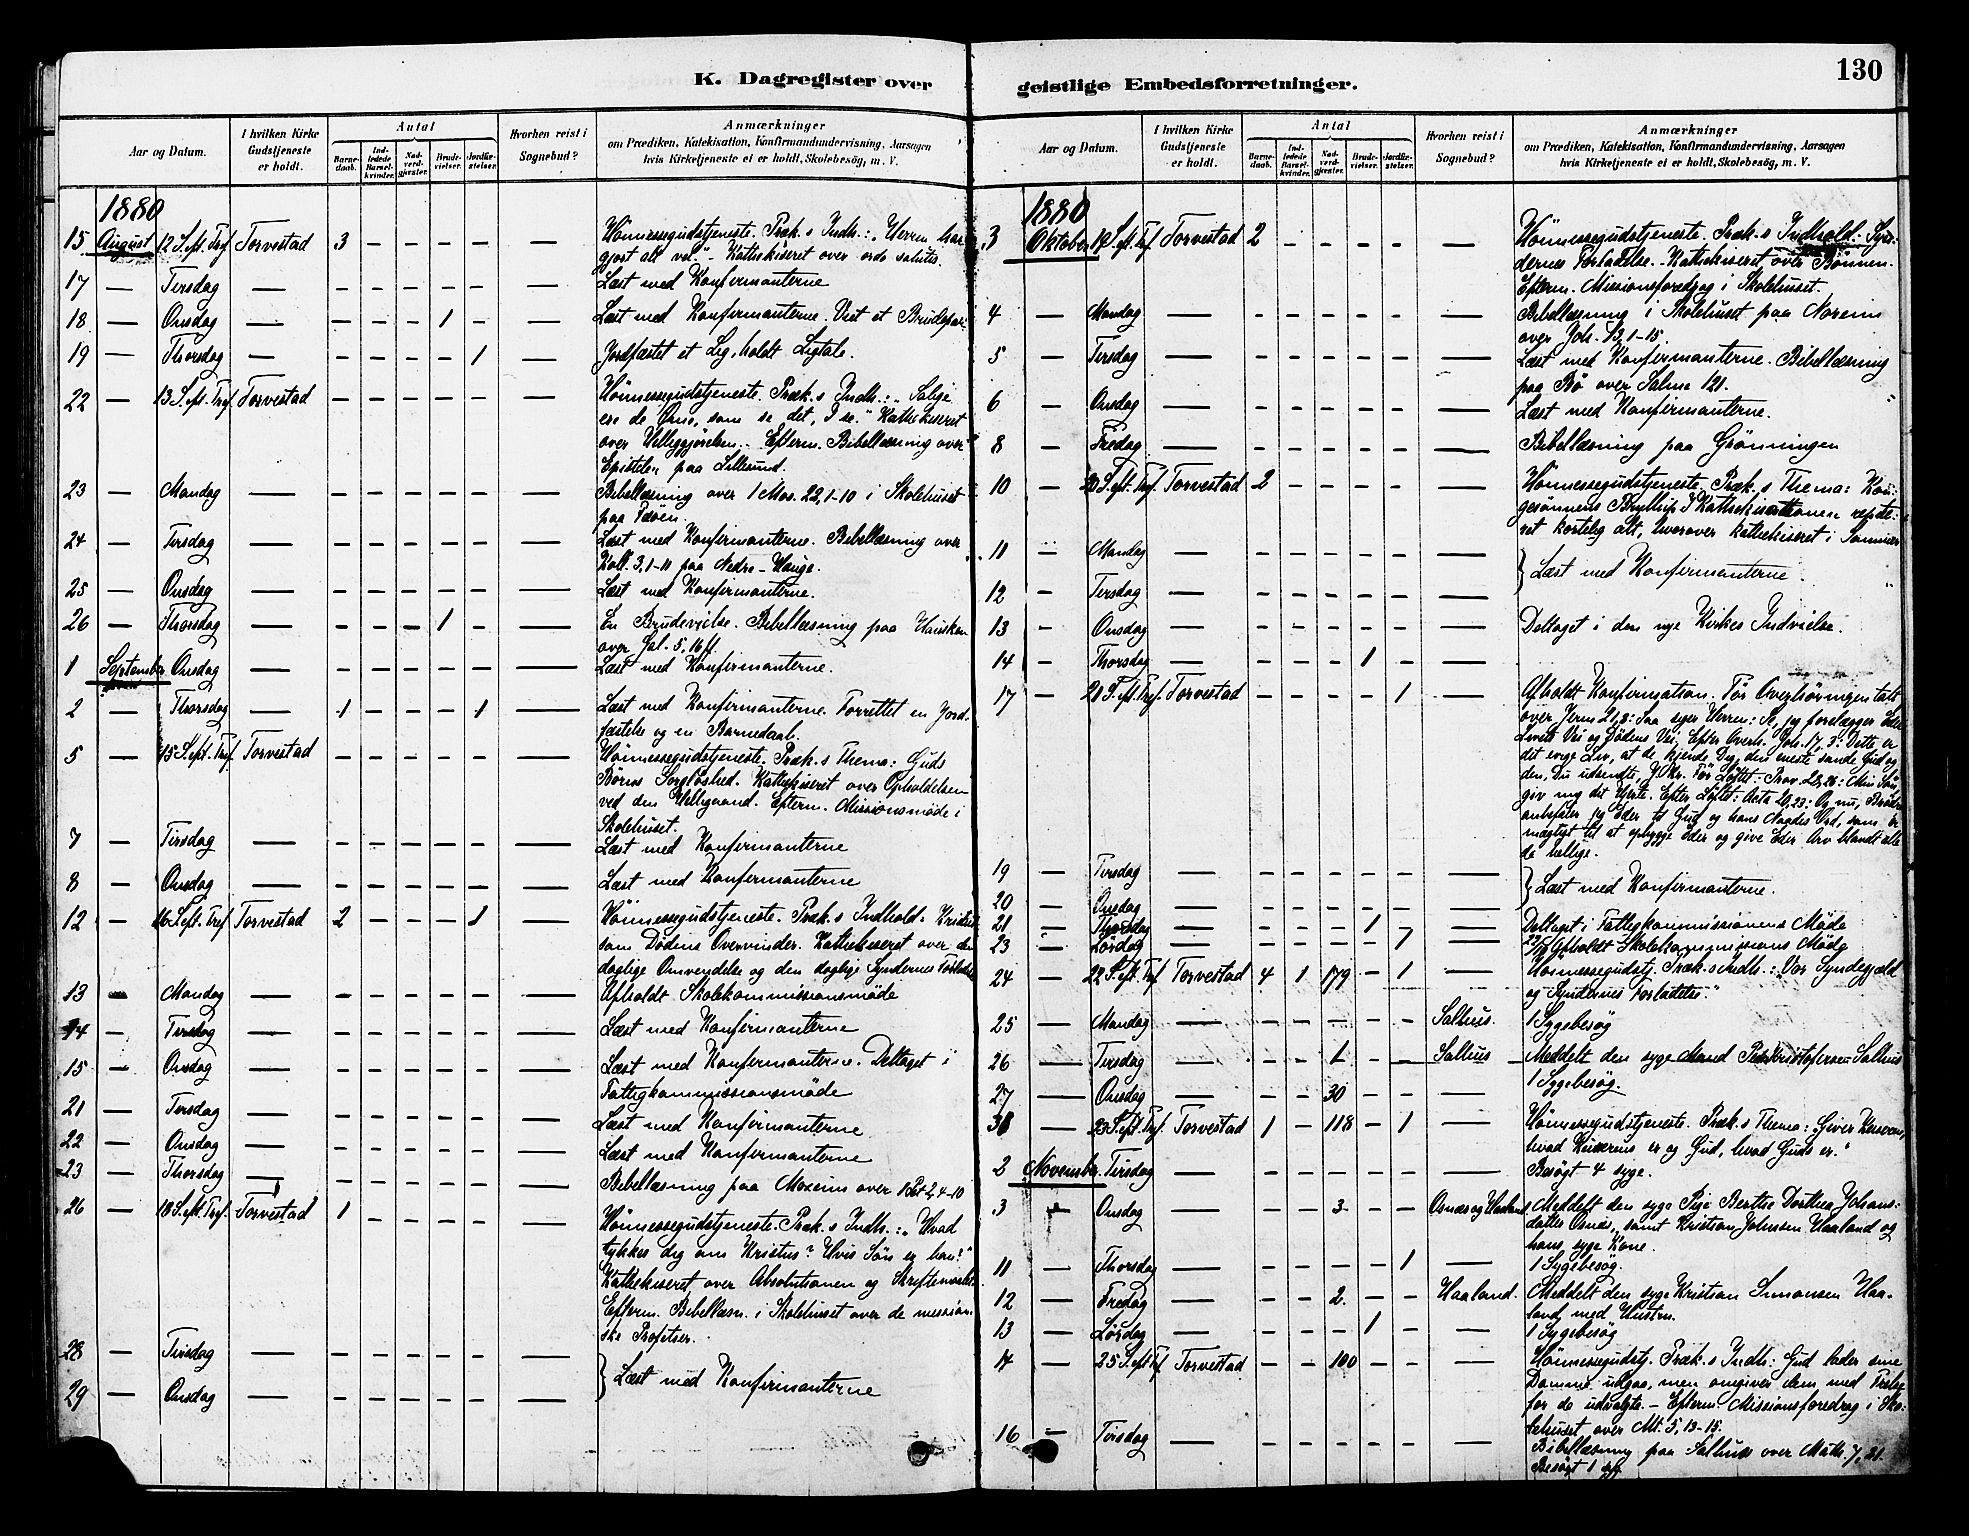 K. Dagregister over
Aar og Datum.
I hvilken Kirke Gudstjeneste er holdt.
Antal
Barne-daab.
Ind-ledede Barsel-kvinder.
Nad-verd-gjester.
Brude-vielser.
Jordfæ-stelser.
Hvorhen reist i Sognebud?
Anmærkninger
om Prædiken, Katekisation, Konfirmandundervisning, Aarsagen
hvis Kirketjeneste ei er holdt, Skolebesög, m. V.
1880
15 August 12 S. eft. Tref. Torvestad 3 – – – – — Höimessegudstjeneste. Præk.s Indh.: „Herren har
gjort alt vel". - Kathekiseret over ordo salutis.
17 — Tirsdag — – – – – – — Læst med Konfirmanterne
18 — Onsdag — – – – 1 – — Læst med Konfirmanterne. Viet et Brudepar
19 — Thorsdag — – – – – 1 — Jordfæstet et Lig, holdt Ligtale.
22 — 13 S. eft. Tref. Torvestad – – – – – — Höimessegudstjeneste. Præk.s Indh.: „Salige
ere de Öine, som se det, I se." Kathekiseret
over Helliggjörelsen. Efterm. Bibellæsning over
Epistelen paa Lillesund.
23 — Mandag — – – – – – — Bibellæsning over 1 Mos. 22,1-10 i Skolehuset
paa Feöen.
24 — Tirsdag — – – – – – — Læst med Konfirmanterne. Bibellæsning over
Koll. 3,1-11 paa Nedre-Hauge.
25 — Onsdag — – – – – – — Læst med Konfirmanterne.
26 — Thorsdag — – – – 1 – — En Brudevielse. Bibellæsning paa Hausken
over Gal. 5, 16 ff.
1 September Onsdag — – – – – – — Læst med Konfirmanterne.
2 — Thorsdag — 1 – – – 1 — Læst med Konfirmanterne. Forrettet en Jord-
fæstelse og en Barnedaab.
5 — 15 S. eft. Tref. Torvestad – – – – – — Höimessegudstjeneste. Præk.s Thema: Guds
Börns Sorglöshed. Kathekiseret over Opholdelsen
ved den Helligaand. Efterm. Missionsmöde i
Skolehuset.
7 — Tirsdag — – – – – – — Læst med Konfirmanterne
8 — Onsdag — – – – – – — Læst med Konfirmanterne
12 — 16 S. eft. Tref. Torvestad 2 – – – 1 — Höimessegudstjeneste. Præk.s Indhold. Kristus
som Dödens Overvinder. Kathekiseret over den
daglige Omvendelse og den daglige Syndernes Forladelse
13 — Mandag — – – – – – — Afholdt Skolekommissionsmöde
14 — Tirsdag — – – – – – — Læst med Konfirmanterne
15 — Onsdag — – – – – – — Læst med Konfirmanterne. Deltaget i
Fattigkommissionsmöde
21 — Tirsdag — – – – – – — Læst med Konfirmanterne
22 — Onsdag — – – – – – — Læst med Konfirmanterne
23 — Thorsdag — – – – – – — Bibellæsning paa Noreim over 1 Pet 2,4-10
26 — 18 S. eft. Tref. Torvestad 1 – – – – — Höimessegudstjeneste. Præk.s Indh.: „Hvad
tykkes dig om Kristus? Hvis Sön er han?"
Kathekiseret over Absolutionen og Skriftemaalet
Efterm. Bibellæsn. i Skolehuset over de messian-
ske Profetier.
28 — Tirsdag — – – – – – — } Læst med Konfirmanterne
29 — Onsdag — – – – – – —
geistlige Embedsforretninger.
130
Aar og Datum.
I hvilken Kirke Gudstjeneste er holdt.
Antal
Barne-daab.
Ind-ledede Barsel-kvinder.
Nad-verd-gjester.
Brude-vielser.
Jordfæ-stelser.
Hvorhen reist i Sognebud?
Anmærkninger
om Prædiken, Katekisation, Konfirmandundervisning, Aarsagen
hvis Kirketjeneste ei er holdt, Skolebesög, m. V.
1880
3 Oktober 19 S. eft. Tref. Torvestad 2 – – – – — Höimessegudstjeneste. Præk.s Indhold: Syn-
dernes Forladelse. Kathekiseret over Bönnen.
Efterm. Missionsforedrag i Skolehuset.
4 — Mandag — – – – – – — Bibellæsning i Skolehuset paa Noreim
over Joh. 13,1-15.
5 — Tirsdag — – – – – – — Læst med Konfirmanterne. Bibellæsning
paa Bö over Salme 121.
6 — Onsdag — – – – – – — Læst med Konfirmanterne.
8 — Fredag — – – – – – — Bibellæsning paa Grönningen
10 — 20 S. eft. Tref. Torvestad 2 – – – – — Höimessegudstjeneste. Præk.s Thema: Kon-
gesönnens Bryllup. I Kathekisationen repete-
ret kortelig alt, hvorover kathekiseret i Sommer
11 — Mandag — – – – – – — } Læst med Konfirmanterne.
12 – Tirsdag — – – – – – —
13 – Onsdag — – – – – – — Deltaget i den nye Kirkes Indvielse.
14 – Thorsdag — – – – 1 – —
17 — 21 S. eft. Tref. Torvestad – – – – 1 — Afholdt Konfirmation. För Overhöringen talt
over Jerm 21,8: Saa siger Herren: Se, jeg forelægger Eder
Livets Vei og Dödens Vei, Efter Overh. Joh. 17, 3: Dette er
det evige Liv, at de kjende Dig, den eneste sande Gud og
den, Du udsendte, J. Kr. För Löftet: Prov. 23,26: Min Sön,
giv mig dit Hjerte. Efter Löftet: Acta 20,23: Og nu, Brödre
anbefaler jeg Eder til Gud og hans Naades Ord, som er
mægtigt til at opbygge Eder og give Eder Arv blandt alle
de hellige.
19 — Tirsdag — – – – – – — } Læst med Konfirmanterne.
20 — Onsdag — – – – – – —
21 — Thorsdag — – – – 1 – — Deltaget i Fattigkommissionens Möde
23 — Lördag — – – – – 1 — Afholdt Skolekommissions Möde
24 — 22 S. eft. Tref. Torvestad 4 1 179 – 1 — Höimessegudstj. Præk.s Indh.: „Vor Syndegjæld
og Syndernes Forladelse."
25 — Mandag — – – – – – Salhus. 1 Sygebesög
26 — Tirsdag — – – 1 – – Salhus Meddelt den syge Mand Peder Kristofersen Salhus
27 — Onsdag — – – 30 – – — 1 Sygebesög.
31 — 23 S. eft. Tref. Torvestad 1 – 118 – 1 — Höimessegudstjeneste. Præk.s Thema: „Giver Keiseren,
hvad Keiserens er og Gud, hvad Guds er."
2 November Tirsdag — – – – – – — Besögt 4 syge.
3 — Onsdag — – – 3 – – Osnæs og Haaland Meddelt den syge Pige Berthe Dorthea Johans-
datter Osnæs, samt Kristian Johnsen Haaland og
hans syge Kone.
11 — Thorsdag — – – – – 1 — 1 Sygebesög.
12 — Fredag — – – 2 – – Haaland. Meddelt den syge Kristian Simonsen Haa-
land med Hustru.
13 — Lördag — – – – 1 – — 1 Sygebesög
14 — 25 S. eft Tref Torvestad – – 100 – – — Höimessegudstj. Præk.s Indh: Gud lader sine
Domme udgaa, men omgiver dem med Frelse
for de udvalgte. - Efterm. Missionsforedrag i Sko-
lehuset over Mt. 5, 13-15.
16 — Tirsdag — – – – – – — Bibellæsning paa Salhus over Math. 7, 21.
Besögt 1 syg.